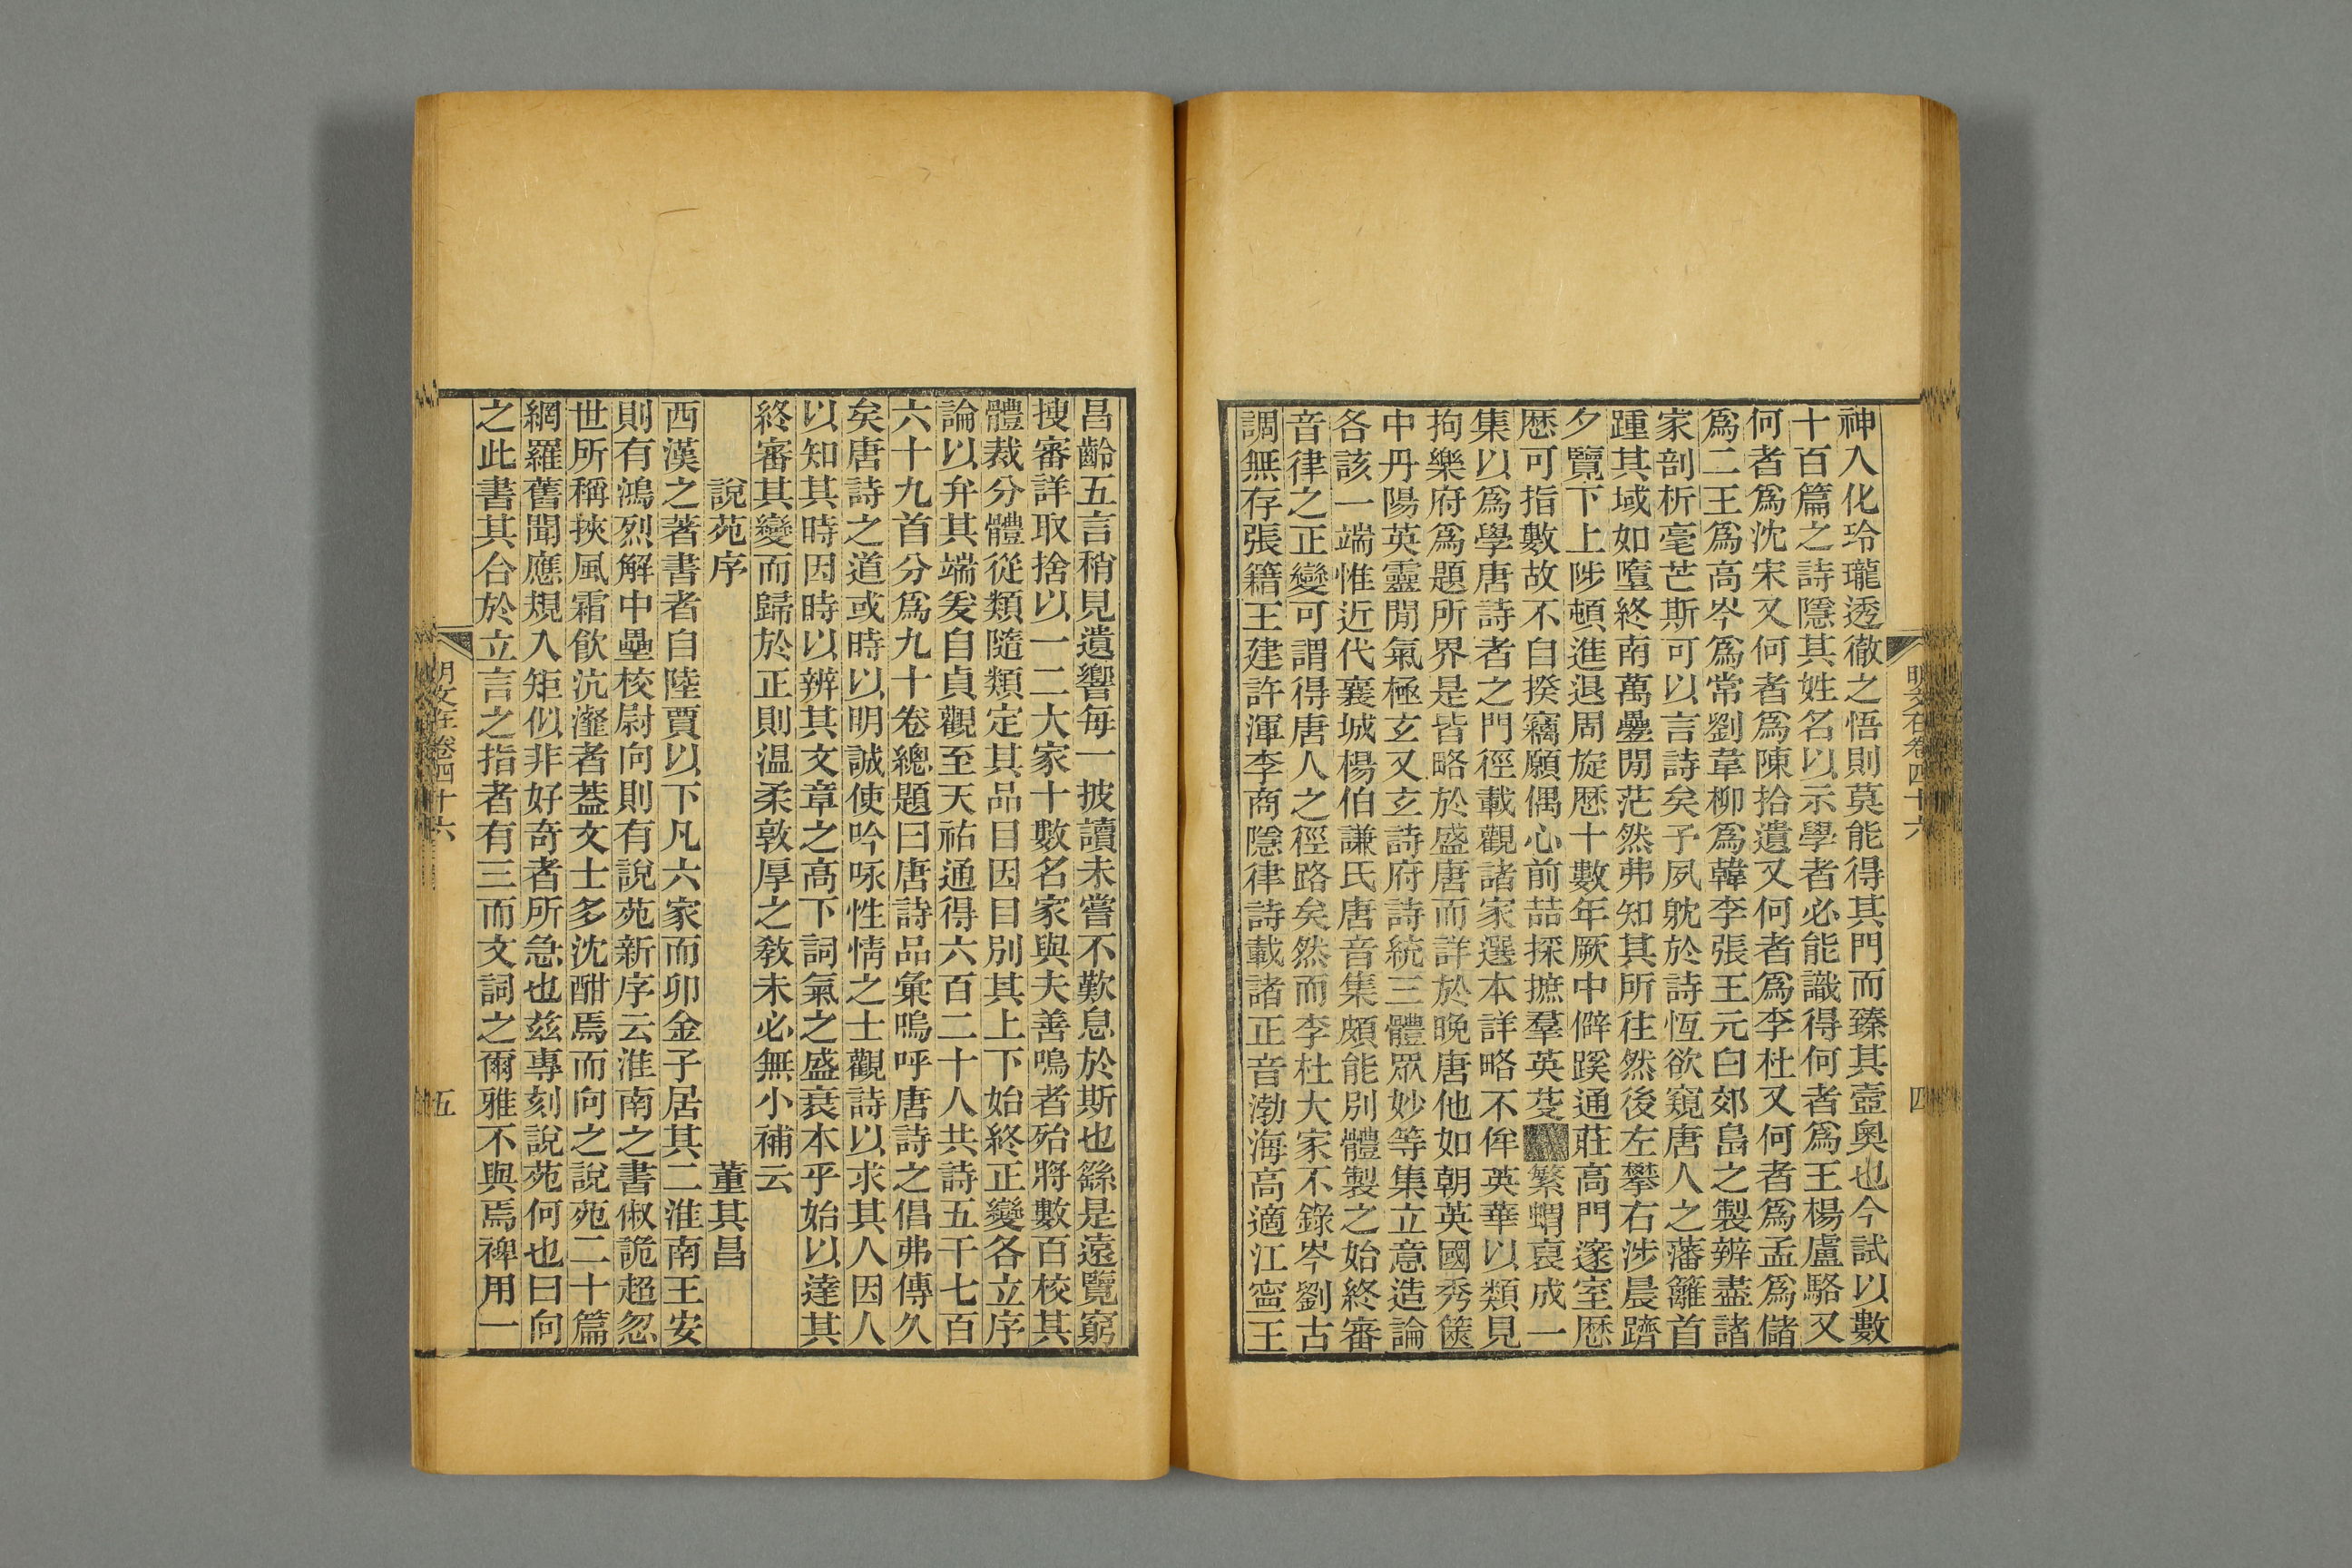 明文在卷四十六
四
神入化玲瓏透徹之悟則莫能得其門而臻其壼奥也今試以數
十百篇之詩隱其姓名以示學者必能識得何者爲王楊盧駱又
何者爲沈宋又何者爲陳拾遺又何者爲李杜又何者爲孟爲儲
爲二王爲高岑爲常劉韋柳爲韓李張王元白郊島之製辨盡諸
家剖析毫芒斯可以言詩矣予夙躭於詩恆欲窺唐人之藩籬首
踵其域如墮終南萬疊閒茫然弗知其所往然後左攀右涉晨躋
夕覽下上陟頓進退周旋歷十數年厥中僻蹊通莊高門邃室歷
歷可指數故不自揆竊願偶心前喆採摭羣英芟繁蝟裒成一
集以爲學唐詩者之門徑載觀諸家選本詳略不侔英華以類見
拘樂府爲題所界是皆略於盛唐而詳於晚唐他如朝英國秀篋
中丹陽英靈閒氣極玄又玄詩府詩統三體眾妙等集立意造論
各該一端惟近代襄城楊伯謙氏唐音集頗能別體製之始終審
音律之正變可謂得唐人之徑路矣然而李杜大家不錄岑劉古
調無存張籍王建許渾李商隱律詩載諸正音渤海高適江甯王
昌齡五言稍見遺響每一披讀未嘗不歎息於斯也繇是遠覽窮
搜審詳取捨以一二大家十數名家與夫善鳴者殆將數百校其
體裁分體從類隨類定其品目因目別其上下始終正變各立序
論以弁其端爰自貞觀至天祐通得六百二十人共詩五千七百
六十九首分爲九十卷總題曰唐詩品彙嗚呼唐詩之倡弗傳久
矣唐詩之道或時以明誠使吟咏性情之士觀詩以求其人因人
以知其時因時以辨其文章之高下詞氣之盛衰本乎始以達其
終審其變而歸於正則温柔敦厚之敎未必無小補云
說苑序　董其昌
西漢之著書者自陸賈以下凡六家而卯金子居其二淮南王安
則有鴻烈解中壘校尉向則有說苑新序云淮南之書俶詭超忽
世所稱挾風霜飮沆瀣者葢文士多沈酣焉而向之說苑二十篇
網羅舊聞應規入矩似非好奇者所急也茲專刻說苑何也曰向
之此書其合於立言之指者有三而文詞之爾雅不與焉裨用一
明文在卷四十六
五